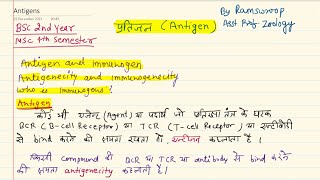 Antigens
BSC 2nd Year
MSC 4th Semester
प्रतिजन (Antigen)
By Ramswroop
Asst Prof. Zoology
Antigen and immunogen
Antigenecity and immunogenicity
Who is Immunogens?
Antigen
कोई भी एजेन्ट (Agent) या पदार्थ जो प्रतिरक्षा तंत्र के घटक
BCR (B-cell Receptor) या TCR (T-cell Receptor) या एन्टीबॉडी
से बिंद करने की क्षमता रखता है, एन्टीजन कहलाता है।
किसी Compound की BCR या TCR या antibody से bind करने
की क्षमता antigenecity कहलाती है।